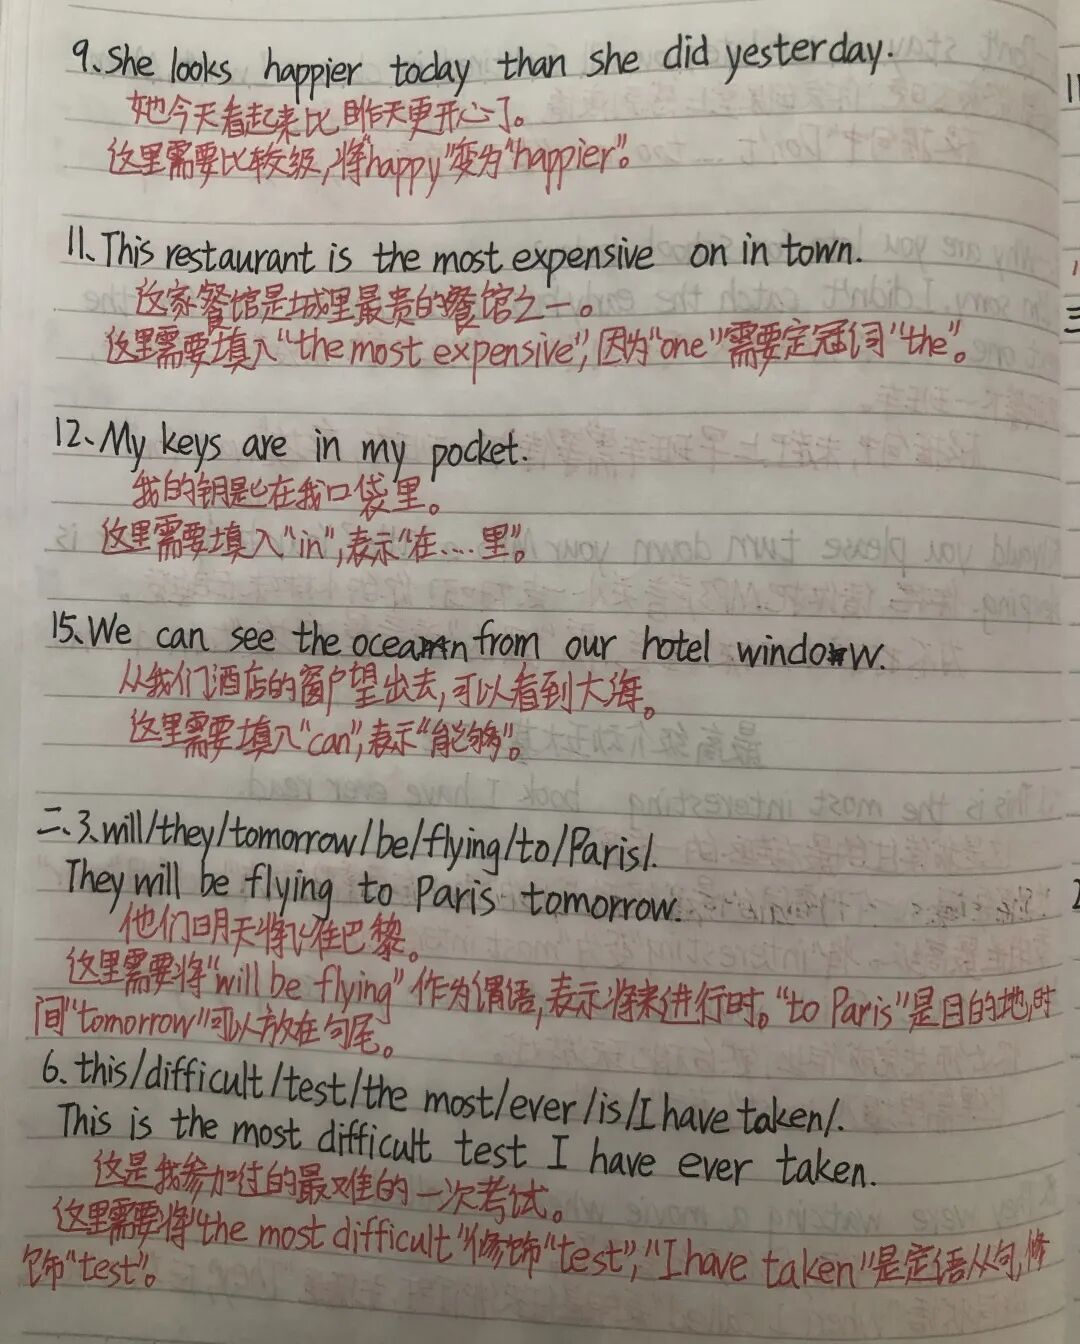 9、She looks happier today than she did yesterday.
她今天看起来比昨天更开心了。
这里需要比较级,将"happy"变为"happier"。
11、This restaurant is the most expensive on in town.
这家餐馆是城里最贵的餐馆之一。
这里需要填入"the most expensive",因为"one"需要定冠词"the"。
12、My keys are in my pocket.
我的钥匙在我口袋里。
这里需要填入"in",表示"在....里"。
15、We can see the ocean from our hotel window.
从我们酒店的窗户望出去,可以看到大海。
这里需要填入"can",表示"能够"。
二、3、will/they/tomorrow/be/flying/to/Paris/.
They will be flying to Paris tomorrow.
他们明天将飞往巴黎。
这里需要将"will be flying"作为谓语,表示将来进行时。"to Paris"是目的地,时
间"tomorrow"可以放在句尾。
6、this/difficult/test/the most/ever/is/I have taken/.
This is the most difficult test I have ever taken.
这是我参加过的最难的一次考试。
这里需要将"the most difficult"修饰"test","I have taken"是定语从句,修
饰"test"。